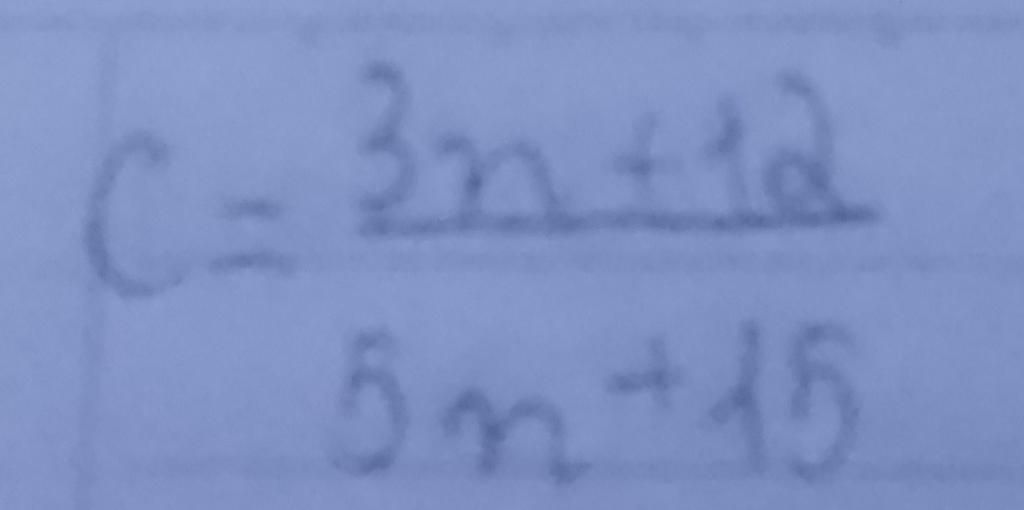 C = 3n + 12
5n + 15